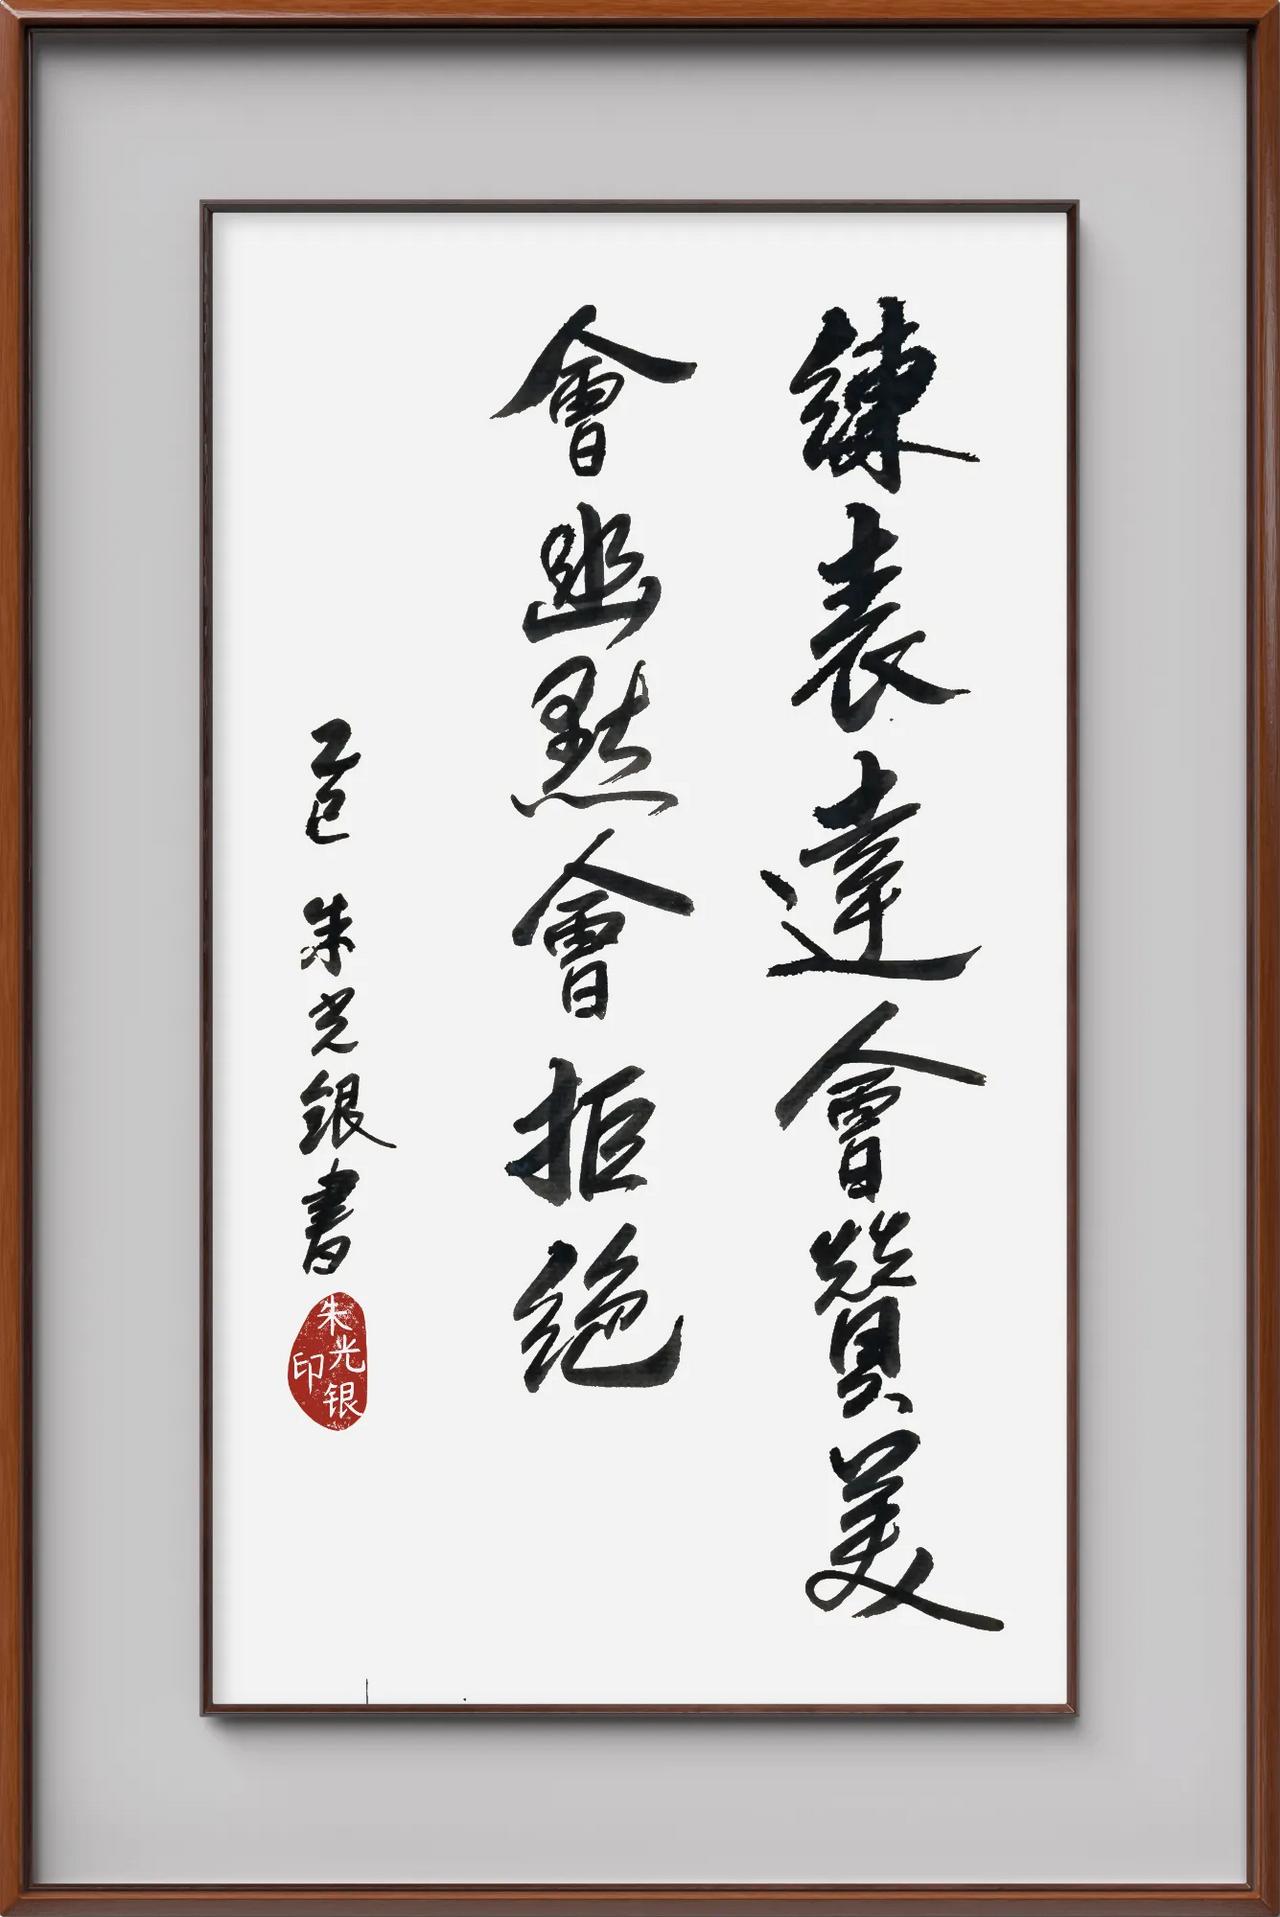 練表達會贊美
會幽默會拒絕
乙巳 朱光银書
朱光银
印